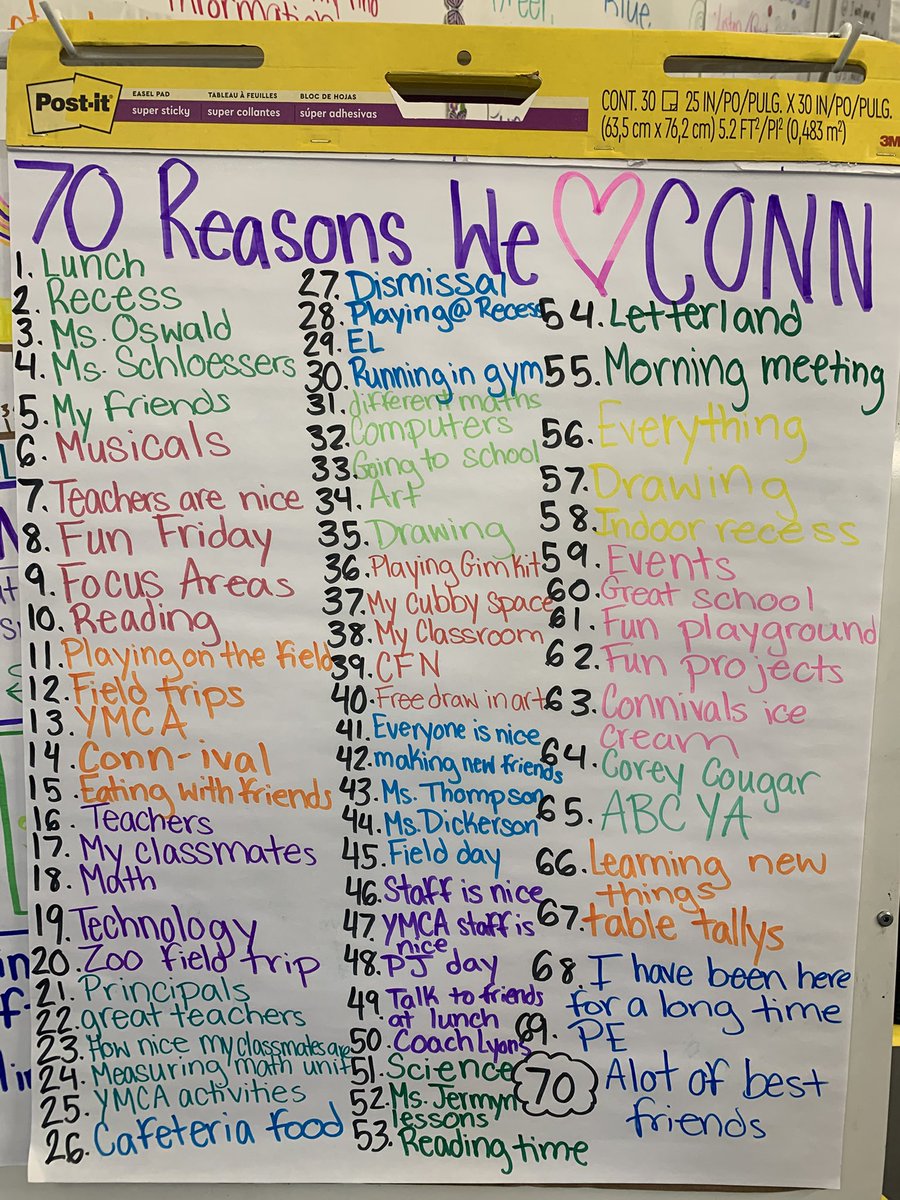 Post-it
EASEL PAD
super sticky
TABLEAU À FEUILLES
super collantes
BLOC DE HOJAS
súper adhesivas
CONT. 30 25 IN/PO/PULG. X 30 IN/PO/PULG.
(63,5 cm x 76,2 cm) 5.2 FT²/PI² (0,483 m²)
3M
70 Reasons We CONN
1. Lunch
2. Recess
3. Ms. Oswald
4. Ms. Schloessers
5. My friends
6. Musicals
7. Teachers are nice
8. Fun Friday
9. Focus Areas
10. Reading
11. Playing on the field
12. Field trips
13. YMCA
14. Conn-ival
15. Eating with friends
16. Teachers
17. My classmates
18. Math
19. Technology
20. Zoo field trip
21. Principals
22. great teachers
23. How nice my classmates are
24. Measuring math unit
25. YMCA activities
26. Cafeteria food
27. Dismissal
28. Playing@Recess
29. EL
30. Running in gym
31. different maths
32. Computers
33. Going to school
34. Art
35. Drawing
36. Playing Gimkit
37. My Cubby Space
38. My Classroom
39. CFN
40. Free draw in art
41. Everyone is nice
42. making new friends
43. Ms. Thompson
44. Ms. Dickerson
45. Field day
46. Staff is nice
47 YMCA staff is
nice
48. PJ day
49. Talk to friends
at lunch
50. Coach Lyons
51. Science
52. Ms. Jermyn
lessons
53. Reading time
54. Letterland
55. Morning meeting
56. Everything
57. Drawing
58. Indoor recess
59. Events
60. Great school
61. Fun playground
62. Fun projects
63. Connivals ice
cream
64. Corey Cougar
65. ABC YA
66. Learning new
things
67. table tallys
68. I have been here
for a long time
69. PE
70 Alot of best
friends